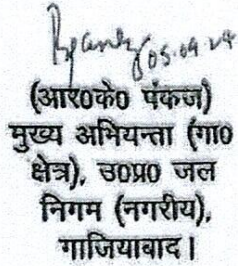 05.09.24
(आर0के0 पंकज)
मुख्य अभियन्ता (गा0
क्षेत्र), उ0प्र0 जल
निगम (नगरीय),
गाजियाबाद।